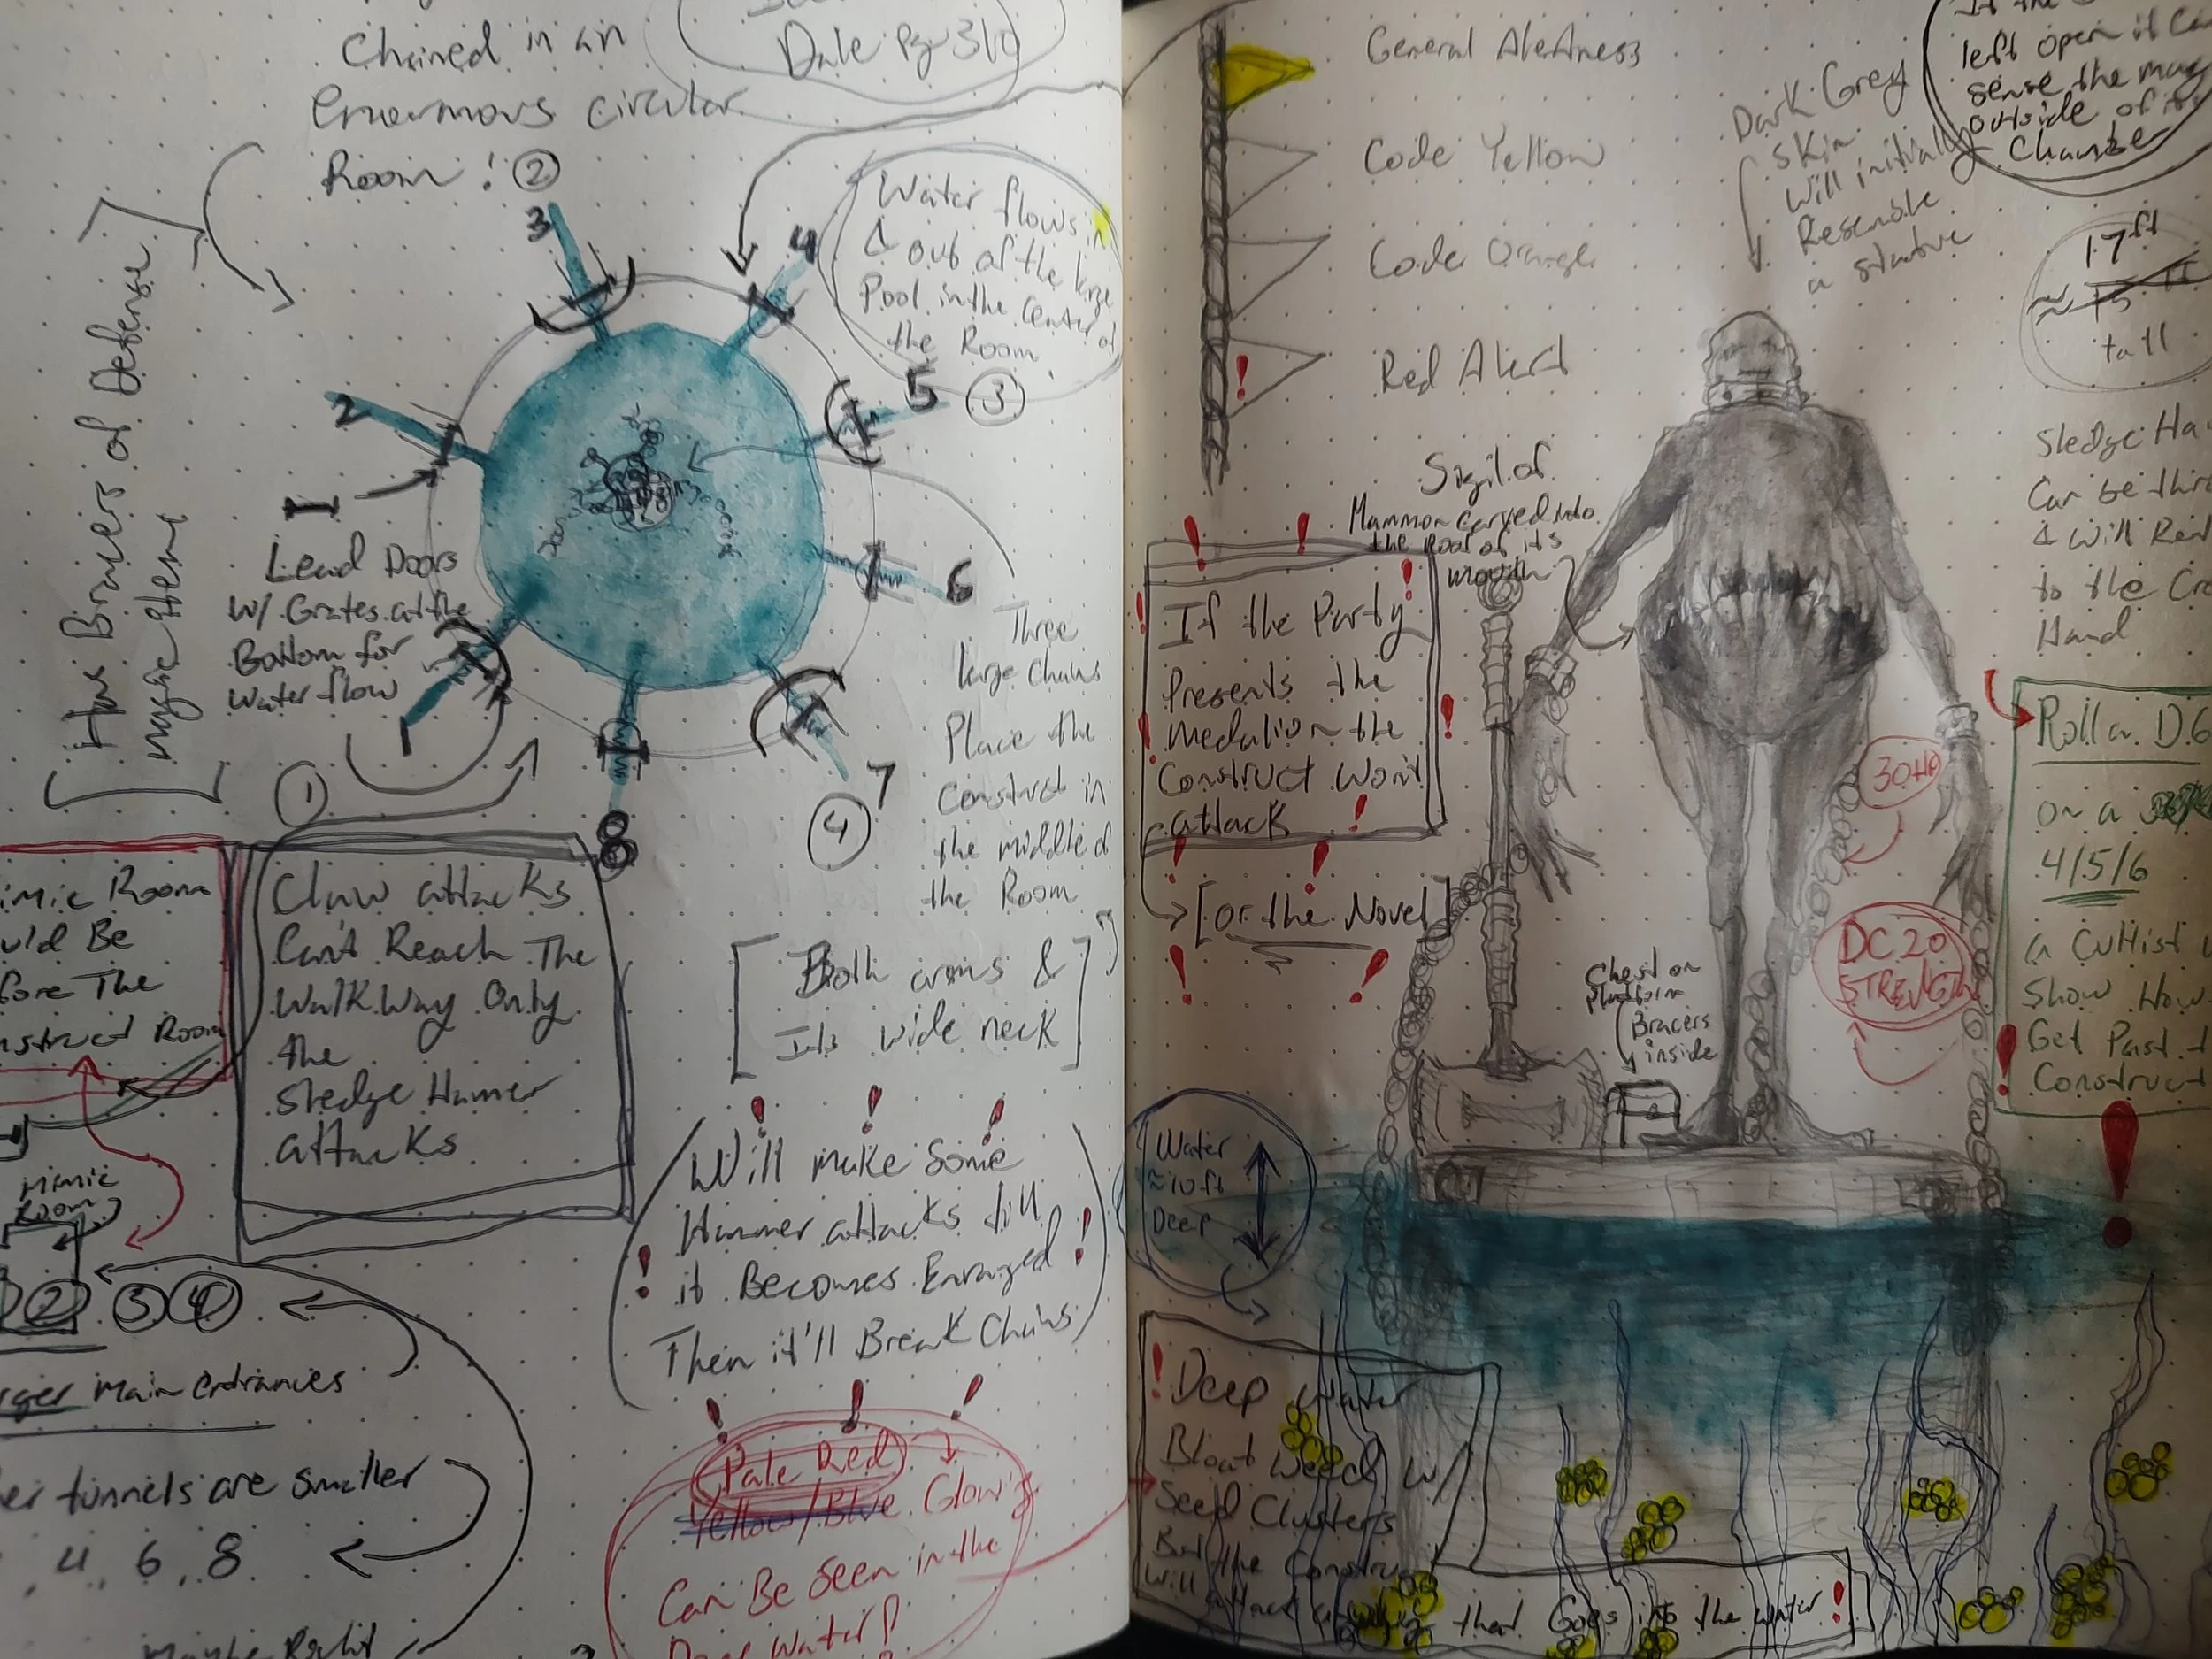 Chained in an
Enormous circular
Room! ②
Dale Pg 310
[Has Bracers of Defense
magic Item]
3
4
2
5
③
6
1
7
④
8
①
Water flows in
& out of the large
Pool in the Center of
the Room
Lead Doors
W/ Grates at the
Bottom for
Water flow
Three
large Chains
Place the
Construct in
the middle of
the Room
[Both arms &
Its wide neck]
Mimic Room
Before The
Construct Room
Claw attacks
Can't Reach The
WalkWay Only
the
Sledge Hamer
attacks
Mimic
Room
② ③ ④
main entrances
tunnels are smaller
4, 6, 8
Maybe Right
(Will make Some
Hammer attacks till
it Becomes Enraged!
Then it'll Break Chains)
Pale Red
Yellow/Blue Glowing
Can Be Seen in the
Deep Water!
General Alertness
Code Yellow
Code Orange
Red Alert
!
Dark Grey
Skin
Will initially
Resemble
a statue
left open it
sense the
outside of its
Chamber
17ft
≈ 15 ft
tall
Sigil of
Mammon carved into
the roof of its
mouth
If the Party
Presents the
Medalion the
Construct Won't
attack
[or the Novel]
Sledge
Can be
& will
to the
Hand
Roll a D6
on a
4/5/6
a Cultist
Show How
Get Past
Construct
30HP
DC 20
STRENGTH
Chest on
Platform
Bracers
inside
Water
≈10ft
Deep
! Deep water
Bloat Weed w/
Seed Clusters
But the Construct
will attack anything that Goes into the water!